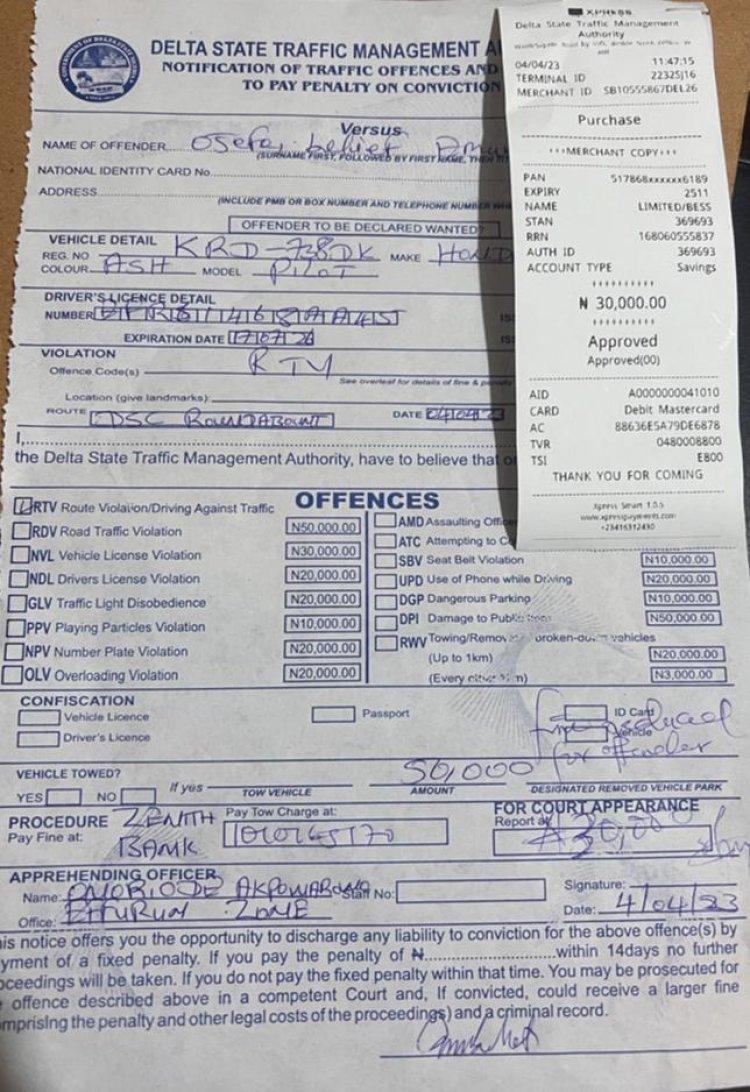 DELTA STATE TRAFFIC MANAGEMENT A
NOTIFICATION OF TRAFFIC OFFENCES AND
TO PAY PENALTY ON CONVICTION
Versus
NAME OF OFFENDER
(SURNAME FIRST, FOLLOWED BY FIRST NAME, THEN
NATIONAL IDENTITY CARD No.
ADDRESS
(INCLUDE PMB OR BOX NUMBER AND TELEPHONE NUMBER
OFFENDER TO BE DECLARED WANTED?
VEHICLE DETAIL
REG. NO KRD-738DK MAKE HOND
COLOUR ASH MODEL PILOT
DRIVER'S LICENCE DETAIL
NUMBER
EXPIRATION DATE 17/07/26
VIOLATION
Offence Code(s) RTV
See overleaf for details of fine & penalty
Location (give landmarks):
ROUTE DSC ROUNDABOUNT DATE 04/04/23
I,
the Delta State Traffic Management Authority, have to believe that o
OFFENCES
RTV Route Violation/Driving Against Traffic N50,000.00
RDV Road Traffic Violation N30,000.00
NVL Vehicle License Violation N20,000.00
NDL Drivers License Violation N20,000.00
GLV Traffic Light Disobedience N10,000.00
PPV Playing Particles Violation N20,000.00
NPV Number Plate Violation N20,000.00
OLV Overloading Violation
AMD Assaulting Offic
ATC Attempting to C
SBV Seat Belt Violation N10,000.00
UPD Use of Phone while Driving N20,000.00
DGP Dangerous Parking N10,000.00
DPI Damage to Public N50,000.00
RWV Towing/Remov broken-down vehicles
(Up to 1km) N20,000.00
(Every other km) N3,000.00
CONFISCATION
Vehicle Licence
Driver's Licence
Passport
ID Card
Vehicle
fine reduced
for offender
VEHICLE TOWED?
YES NO If yes
TOW VEHICLE
50,000
AMOUNT
DESIGNATED REMOVED VEHICLE PARK
PROCEDURE
Pay Fine at: ZENITH
BANK
Pay Tow Charge at:
FOR COURT APPEARANCE
Report at
APPREHENDING OFFICER
Name:
Staff No:
Office: EFFURUN ZONE
Signature:
Date: 4/04/23
is notice offers you the opportunity to discharge any liability to conviction for the above offence(s) by
yment of a fixed penalty. If you pay the penalty of N within 14days no further
oceedings will be taken. If you do not pay the fixed penalty within that time. You may be prosecuted for
offence described above in a competent Court and, If convicted, could receive a larger fine
mprising the penalty and other legal costs of the proceedings) and a criminal record.
XPRESS
Delta State Traffic Management
Authority
04/04/23 11:47:15
TERMINAL ID 22325J16
MERCHANT ID SB10555867DEL26
Purchase
***MERCHANT COPY***
PAN 517868xxxxxx6189
EXPIRY 2511
NAME LIMITED/BESS
STAN 369693
RRN 168060555837
AUTH ID 369693
ACCOUNT TYPE Savings
**********
₦ 30,000.00
**********
Approved
Approved(00)
AID A0000000041010
CARD Debit Mastercard
AC 88636E5A79DE6878
TVR 0480008800
TSI E800
THANK YOU FOR COMING
Xpress Smart 1.0.5
www.xpresspayments.com
+23416312430